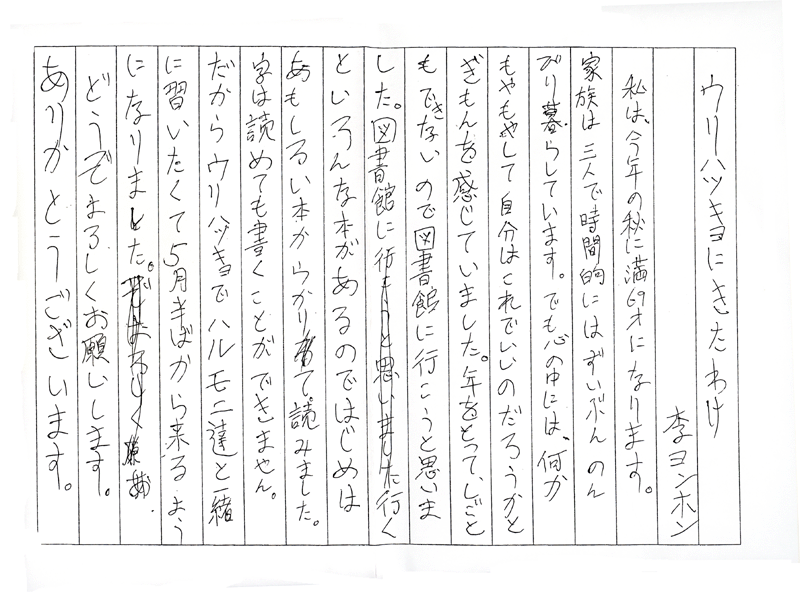 ウリハッキョにきたわけ
李ヨンホン
私は、今年の秋に満69才になります。
家族は三人で時間的にはずいぶんのん
びり暮らしています。でも心の中には、何か
もやもやして自分はこれでいいのだろうかと
ぎもんを感じていました。年をとって、しごと
もできないので図書館に行こうと思いま
した。図書館に行こうと思いました行く
といろんな本があるのではじめは
あもしるい本からかり て読みました。
字は読めても書くことができません。
だからウリハッキョでハルモニ達と一緒
に習いたくて5月半ばから来るよう
になりました。
どうぞよろしくお願いします。
ありがとうございます。